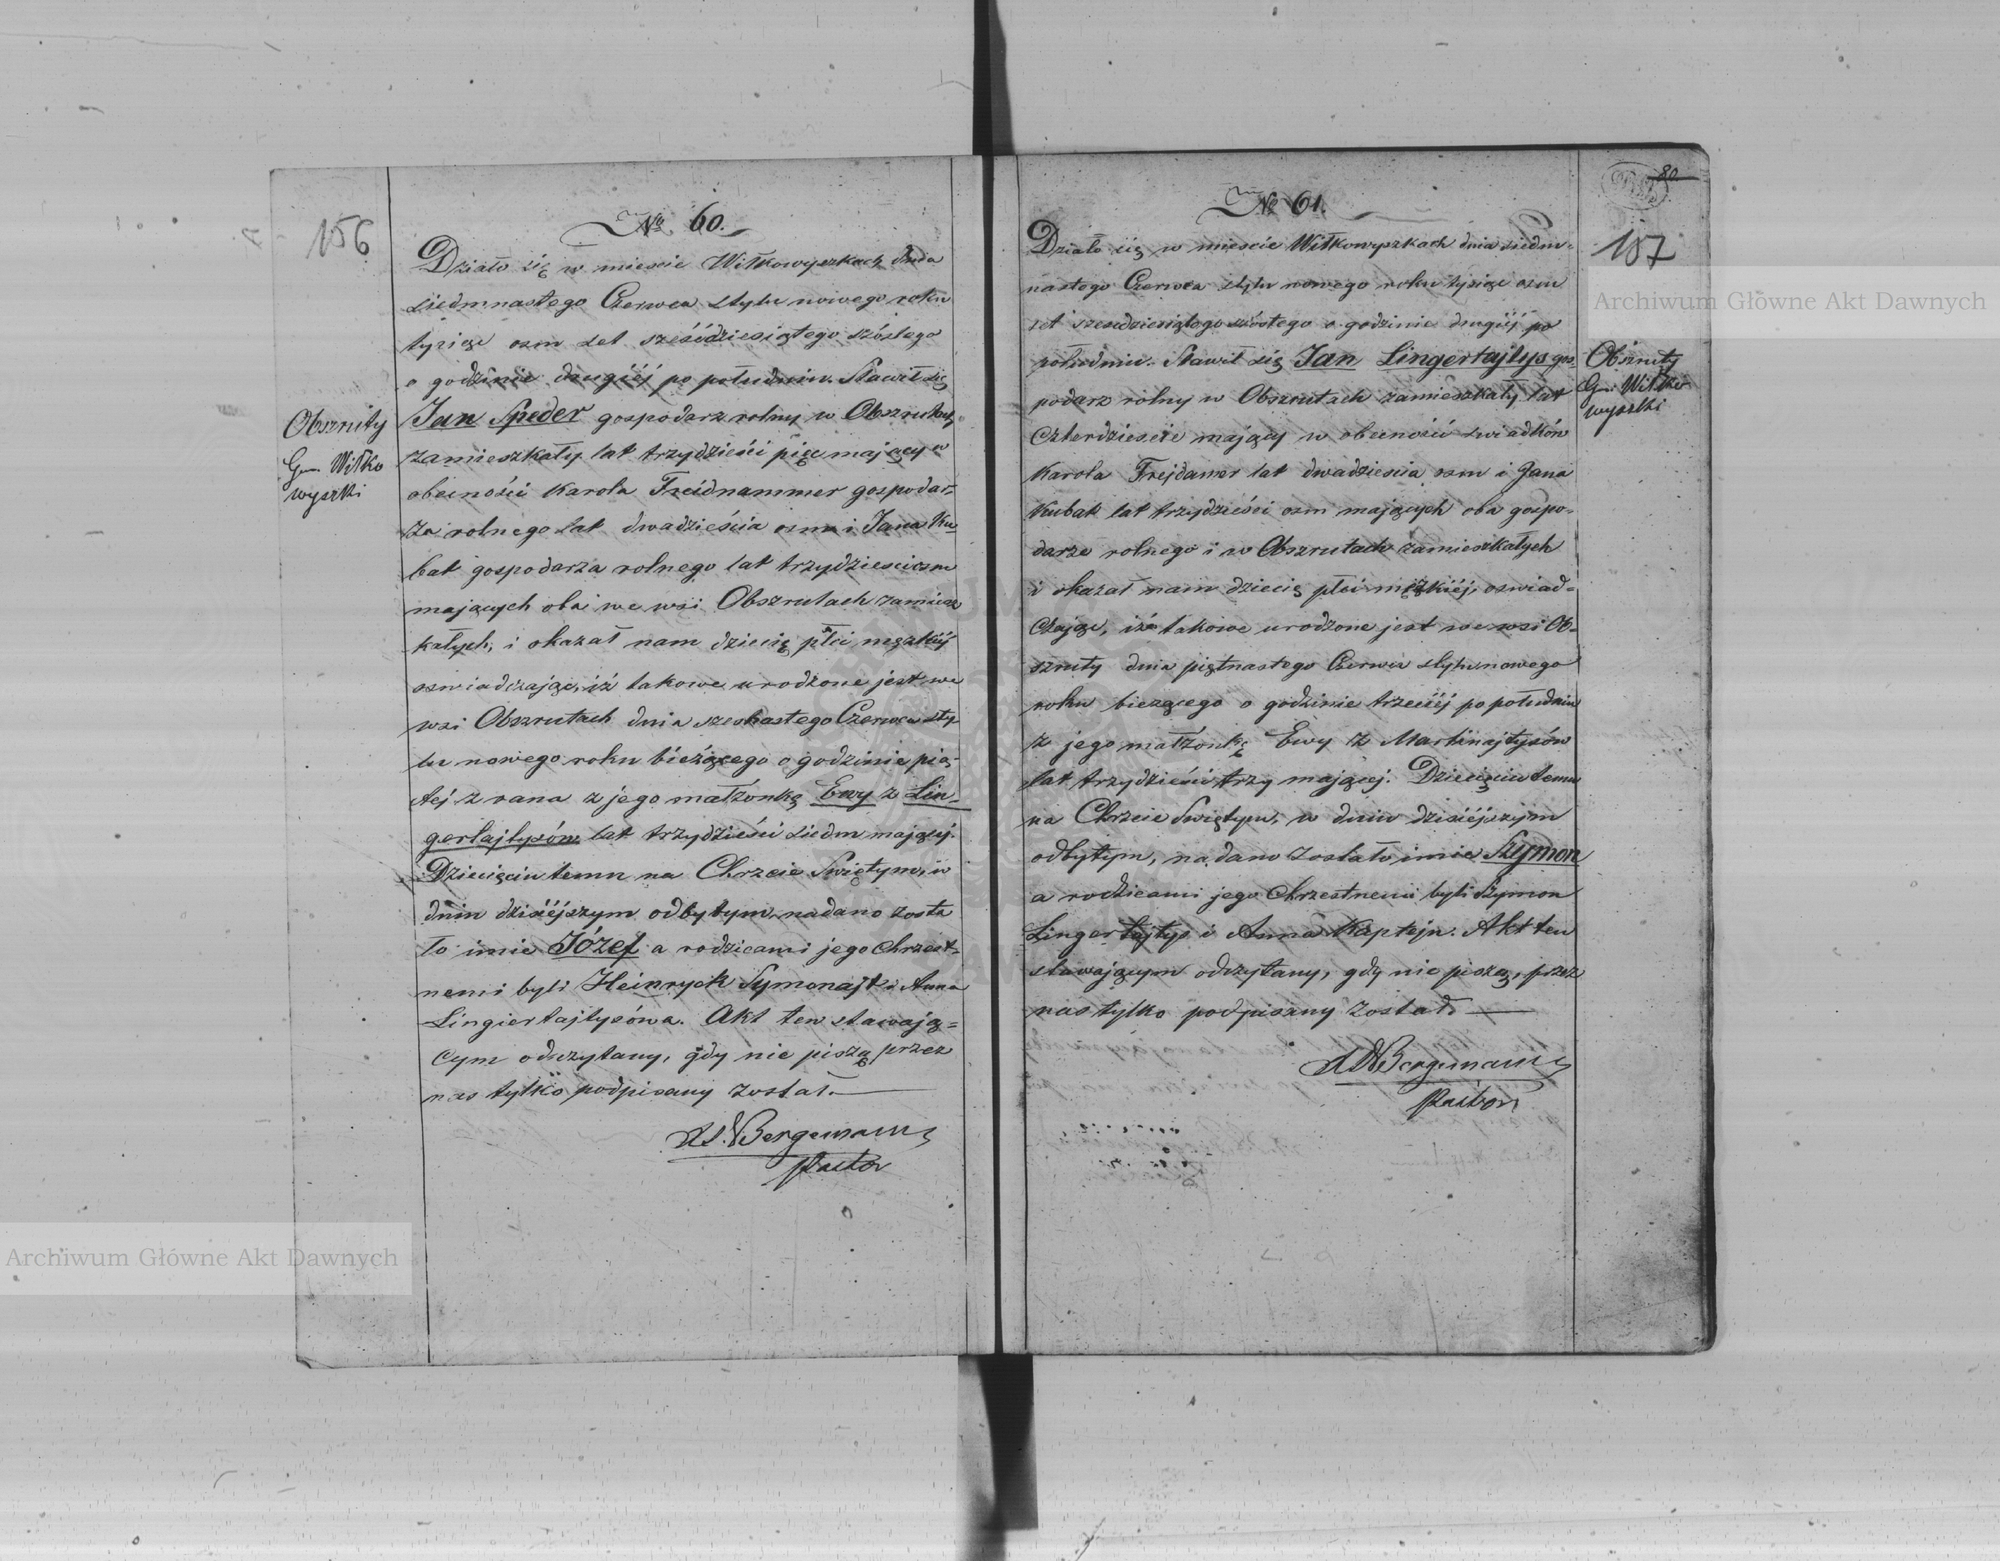 156
No 60.
Działo się w mieście Wiłkowyszkach dnia
siedmnastego Czerwca stylu nowego roku
tysiąc osm set sześćdziesiątego szóstego
o godzinie drugiéj po południu. Stawił się
Jan Speder gospodarz rolny w Obszrutach
zamieszkały lat trzydzieści pięć mający w
obecności Karola Freidnammer gospodar-
za rolnego lat dwadzieścia osm i Jana Ku-
bat gospodarza rolnego lat trzydzieści osm
mających oba we wsi Obszrutach zamiesz
kałych, i okazał nam dziecię płci męzkiéj
oswiadczając, iż takowe urodzone jest we
wsi Obszrutach dnia szesnastego Czerwca sty-
lu nowego roku bieżącego o godzinie pią-
téj z rana z jego małżonką Ewy z Lin-
gertajtysów lat trzydzieści siedm mającej.
Dziecięciu temu na Chrzcie Swiętym, w
dniu dzisiéjszym odbytym, nadano zosta
ło imie Józef a rodzicami jego Chrzest-
nemi byli Heinrych Symonajt i Anna
Lingiertajtysówa. Akt ten stawają-
cym odczytany, gdy nie piszą przez
nas tylko podpisany został.
Bergemann
Pastor
Obszruty
Gm. Wiłko
wyszki
80
157
No 61.
Działo się w miescie Wiłkowyszkach dnia siedm-
nastego Czerwca stylu nowego roku tysiąc osm
set szescdziesiątego szóstego o godzinie drugiéj po
południu. Stawił się Jan Lingertajtys gos-
podarz rolny w Obszrutach zamieszkały lat
Czterdzieście mający w obecności swiadków
Karola Frejdamer lat dwadziescia osm i Jana
Kubat lat trzydzieści osm mających oba gospo-
darze rolnego i w Obszrutach zamieszkałych
i okazał nam dziecię płci męzkiéj, oswiad-
czając, iż takowe urodzone jest we wsi Ob-
szruty dnia piętnastego Czerwca stylu nowego
roku bieżącego o godzinie trzeciéj po południu
z jego małżonką Ewy z Martinajtysów
lat trzydzieści trzy mającej. Dziecięciu temu
na Chrzcie Swiętym, w dniu dzisiéjszym
odbytym, nadano zostało imie Szymon
a rodzicami jego Chrzestnemi byli Szymon
Lingertajtys i Anna Kaptejn. Akt ten
stawającym odczytany, gdy nie piszą, przez
nas tylko podpisany został.
Bergemann
Pastor
Obszruty
Gm. Wiłko
wyszki
Archiwum Główne Akt Dawnych
Archiwum Główne Akt Dawnych